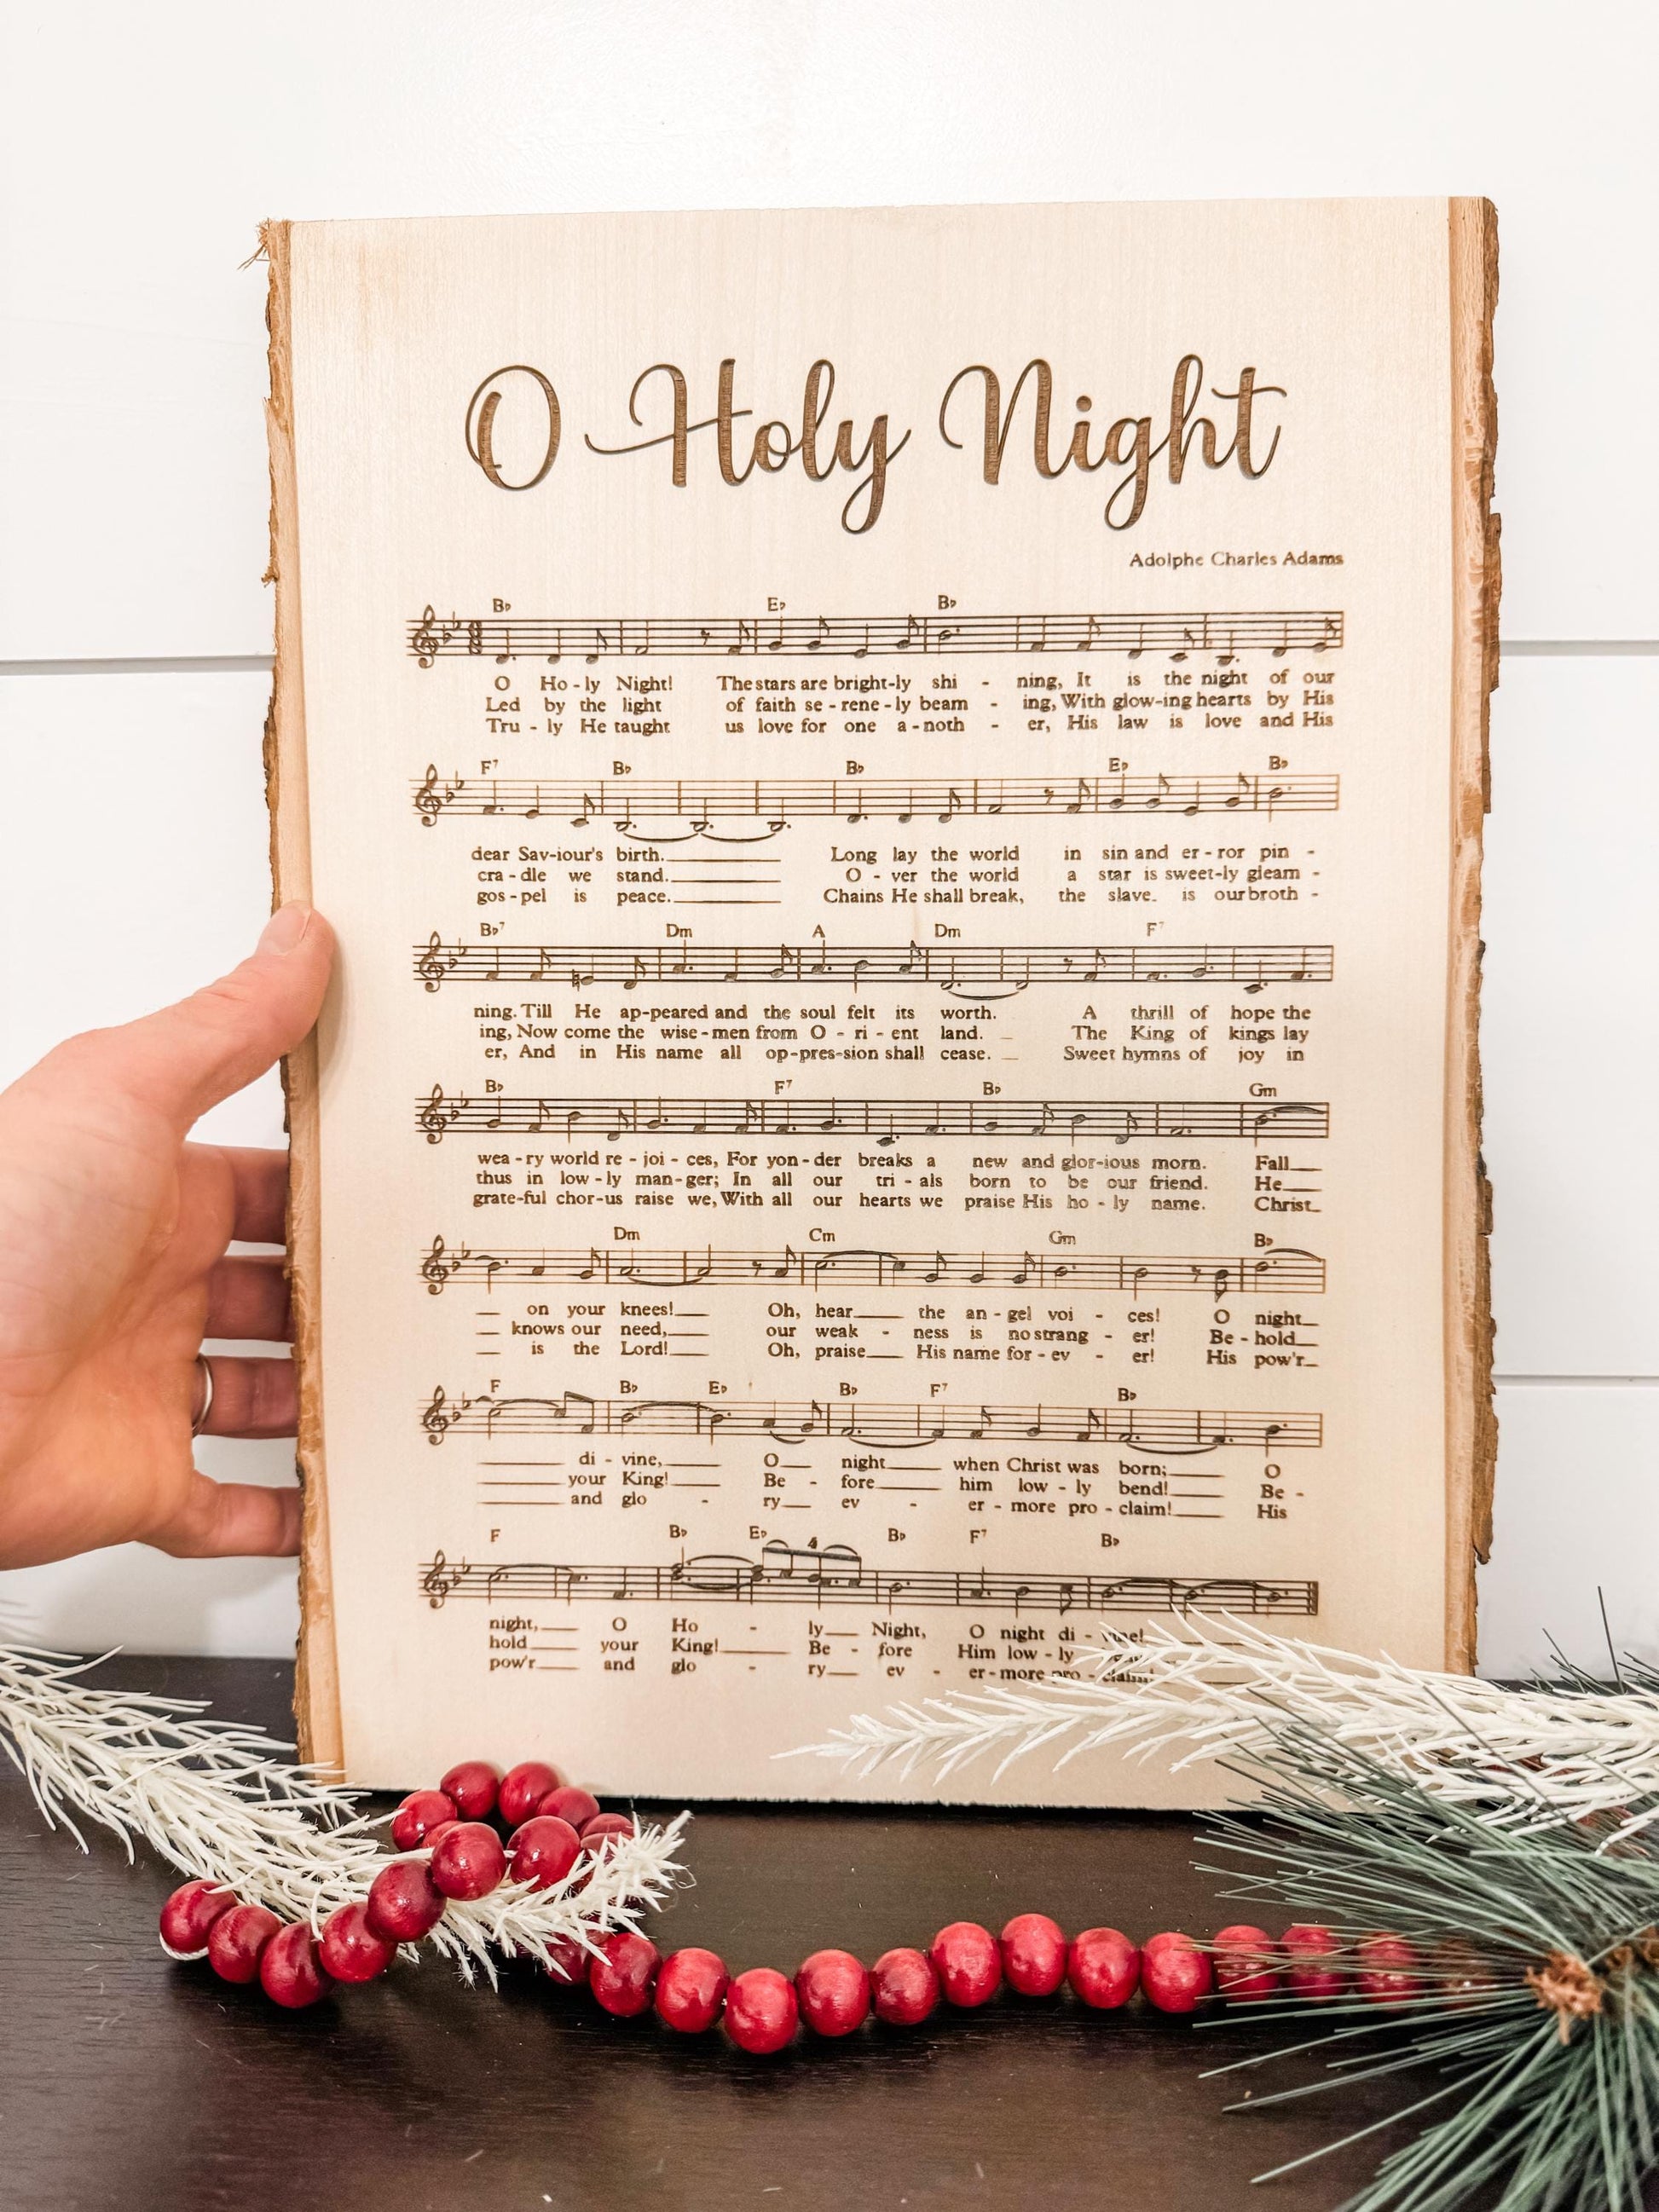 O Holy Night
Adolphe Charles Adams
B♭ E♭ B♭
O Ho - ly Night! The stars are bright-ly shi - ning, It is the night of our
Led by the light of faith se - rene - ly beam - ing, With glow-ing hearts by His
Tru - ly He taught us love for one a - noth - er, His law is love and His
F7 B♭ B♭ E♭ B♭
dear Sav-iour's birth.____ Long lay the world in sin and er - ror pin -
cra - dle we stand.____ O - ver the world a star is sweet-ly gleam -
gos - pel is peace.____ Chains He shall break, the slave. is our broth -
B♭7 Dm A Dm F7
ning. Till He ap-peared and the soul felt its worth. A thrill of hope the
ing, Now come the wise - men from O - ri - ent land. _ The King of kings lay
er, And in His name all op-pres-sion shall cease. _ Sweet hymns of joy in
B♭ F7 B♭ Gm
wea - ry world re - joi - ces, For yon - der breaks a new and glor-ious morn. Fall__
thus in low - ly man - ger; In all our tri - als born to be our friend. He__
grate-ful chor-us raise we, With all our hearts we praise His ho - ly name. Christ_
Dm Cm Gm B♭
__ on your knees!__ Oh, hear__ the an - gel voi - ces! O night_
__ knows our need,__ our weak - ness is no strang - er! Be - hold_
__ is the Lord!__ Oh, praise__ His name for - ev - er! His pow'r_
F B♭ E♭ B♭ F7 B♭
____ di - vine,___ O__ night___ when Christ was born;___ O
____ your King!___ Be - fore___ him low - ly bend!___ Be -
____ and glo - ry__ ev - er - more pro - claim!___ His
F B♭ E♭ 4 B♭ F7 B♭
night,__ O Ho - ly__ Night, O night di - vine!
hold__ your King!___ Be - fore Him low - ly
pow'r__ and glo - ry__ ev - er - more pro - claim!